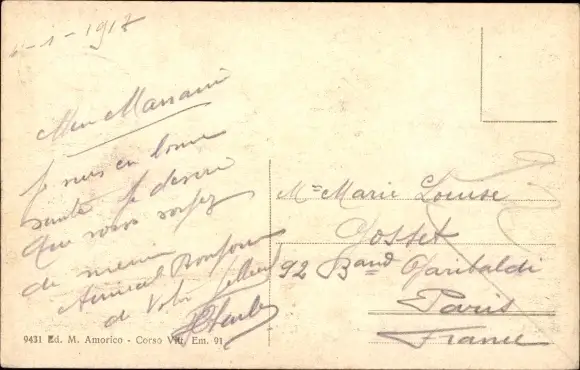 6-1-1917
Je suis en bonne
santé je desire
que vous soyez
de meme
Amical Bonjour
de Votre filleul
Charles
Mme Marie Louise
Gosset
92 Bard Garibaldi
Paris
France
9431 Ed. M. Amorico - Corso Vitt. Em. 91